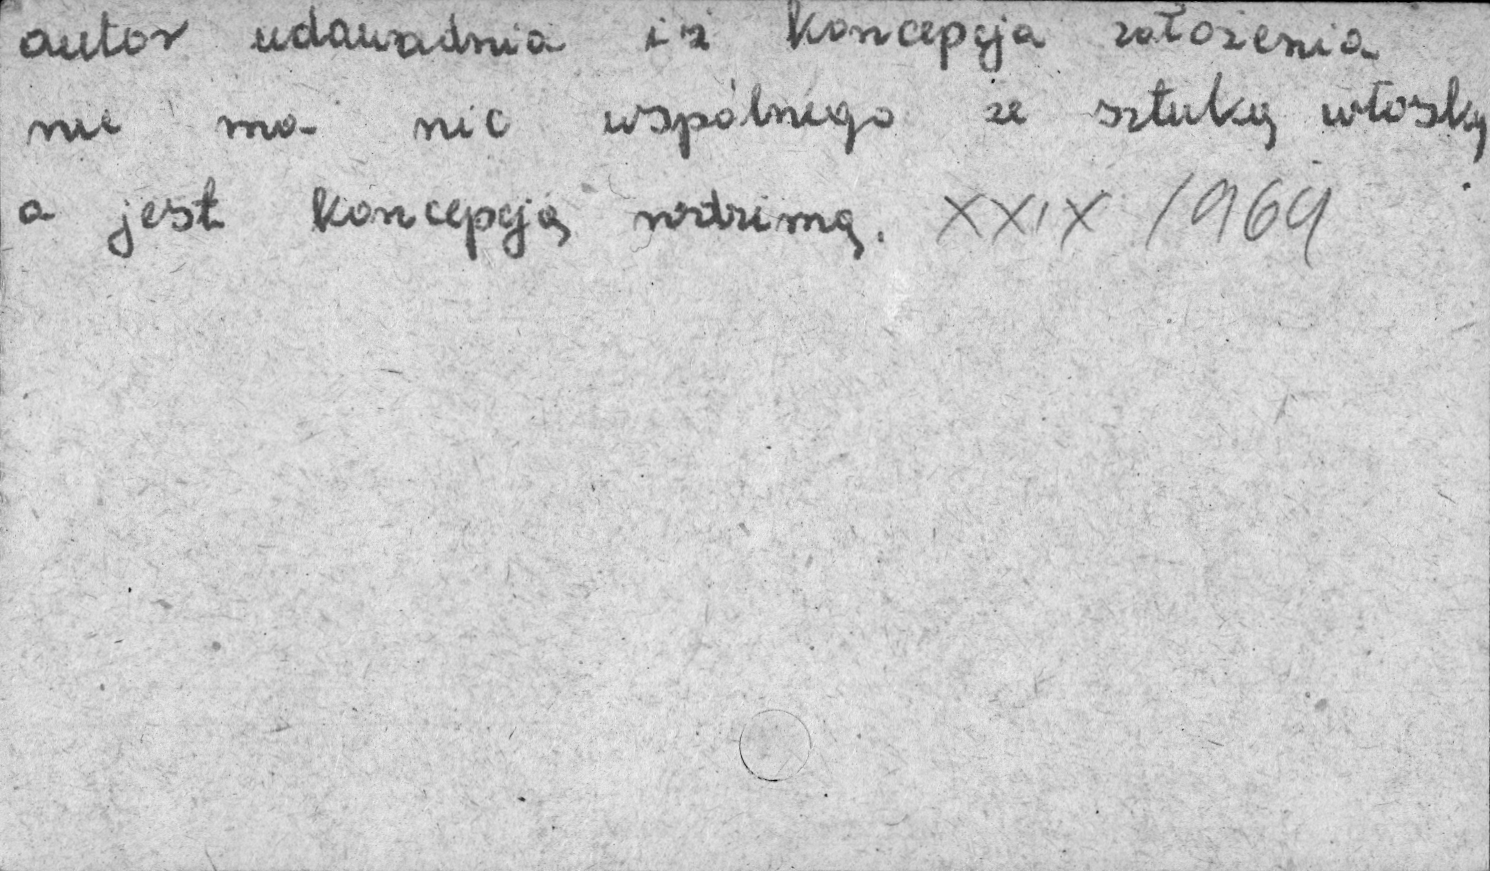 autor udawadnia iż koncepcja założenia
nie ma nic wspólnego ze sztuką włoską
a jest koncepcją rodzimą. XXIX 1969